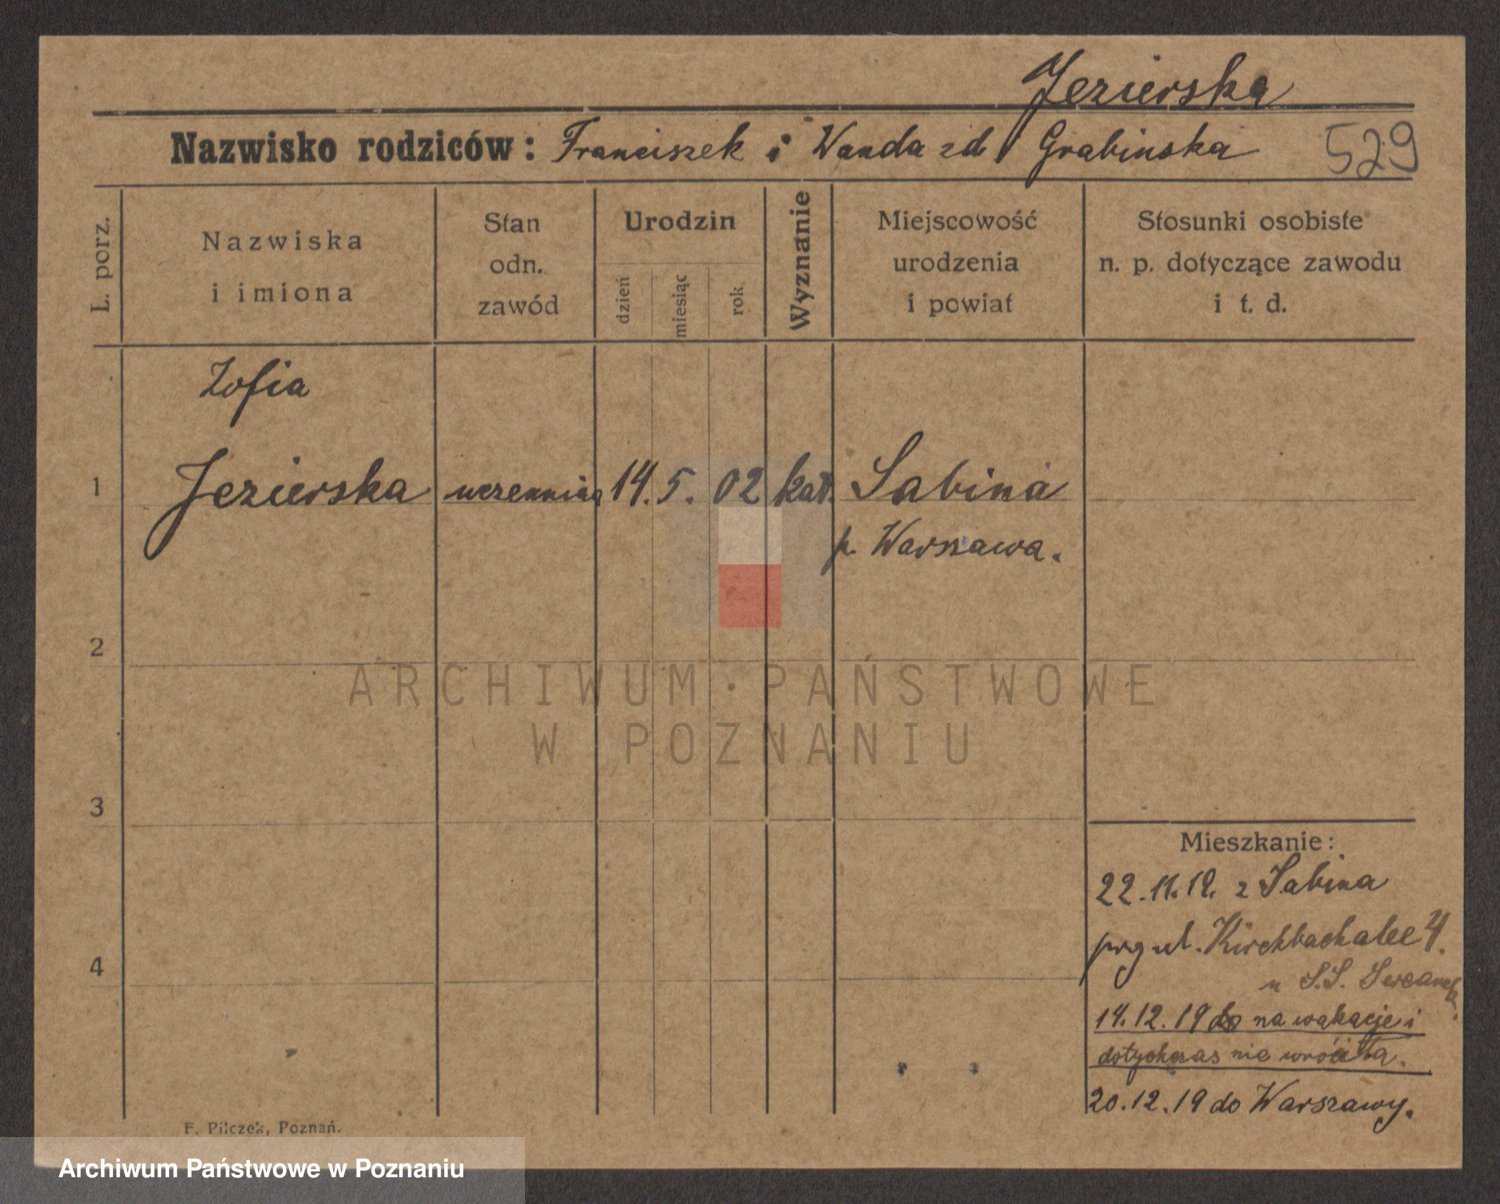 Jezierska
Nazwisko rodziców: Franciszek i Wanda zd Grabinska
529
L. porz.
Nazwiska
i imiona
Stan
odn.
zawód
Urodzin
dzień
miesiąc
rok
Wyznanie
Miejscowość
urodzenia
i powiat
Stosunki osobiste
n. p. dotyczące zawodu
i t. d.
Zofia
1 Jezierska uczennica 14. 5. 02 kat. Sabina
p. Warszawa.
2
3
4
ARCHIWUM PAŃSTWOWE
W POZNANIU
Mieszkanie:
22.11.19. z Sabina
prg ul. Kirchbachalee 4.
u S.S.
14.12.19 do na wakacje i
dotychczas nie wróciła.
20.12.19 do Warszawy.
F. Pilczek, Poznań.
Archiwum Państwowe w Poznaniu